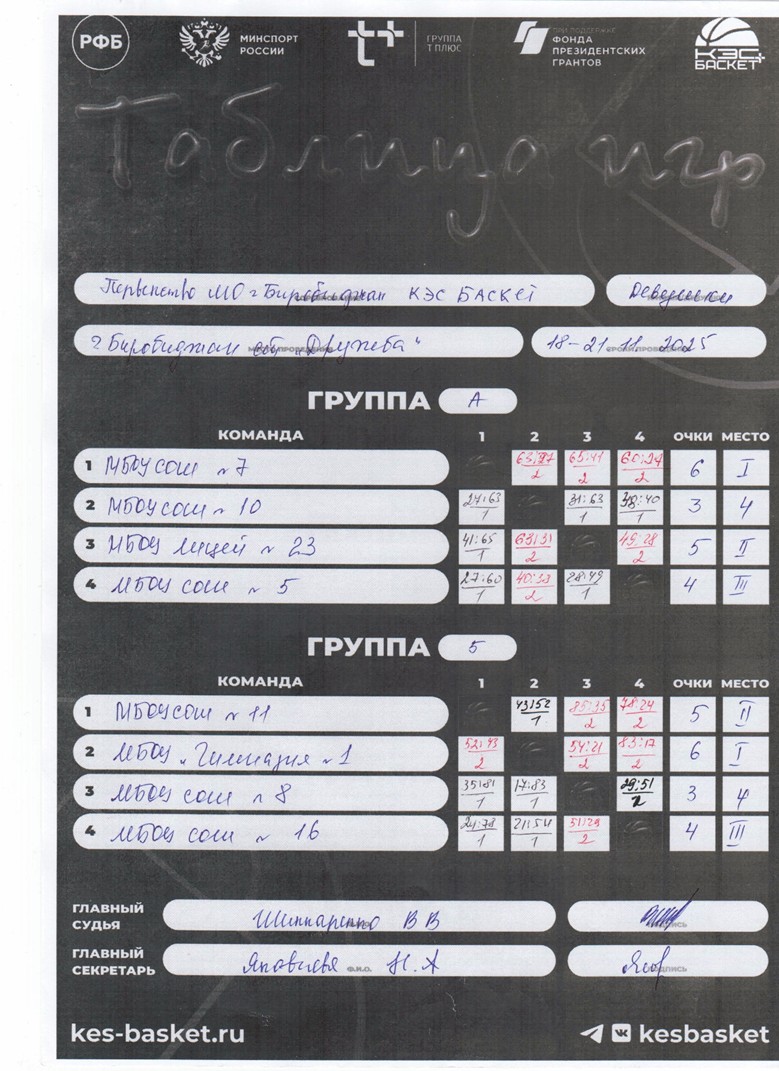 РФБ
МИНСПОРТ РОССИИ
т+
ГРУППА Т ПЛЮС
ПРИ ПОДДЕРЖКЕ ФОНДА ПРЕЗИДЕНТСКИХ ГРАНТОВ
КЭС БАСКЕТ
Таблица игр
Первенство МО г Биробиджан КЭС БАСКЕТ Девушки
г Биробиджан "Дружба" 18-21.11.2025
ГРУППА А
КОМАНДА 1 2 3 4 ОЧКИ МЕСТО
1 МБОУ СОШ №7 65:41/2 60:27/2 6 I
2 МБОУ СОШ № 10 27:63/1 31:63/1 1 3 4
3 МБОУ лицей № 23 41:65/1 63:31/2 2 5 II
4 МБОУ СОШ № 5 27:60/1 2 28:49/1 4 III
ГРУППА Б
КОМАНДА 1 2 3 4 ОЧКИ МЕСТО
1 МБОУ СОШ № 11 43:52/1 2 78:24/2 5 II
2 МБОУ "Гимназия №1 52:43/2 54:21/2 83:17/2 6 I
3 МБОУ СОШ № 8 1 17:83/1 29:51/2 3 4
4 МБОУ СОШ № 16 24:78/1 21:54/1 51:29/2 4 III
ГЛАВНЫЙ СУДЬЯ В В
ГЛАВНЫЙ СЕКРЕТАРЬ Н.А
kes-basket.ru
kesbasket